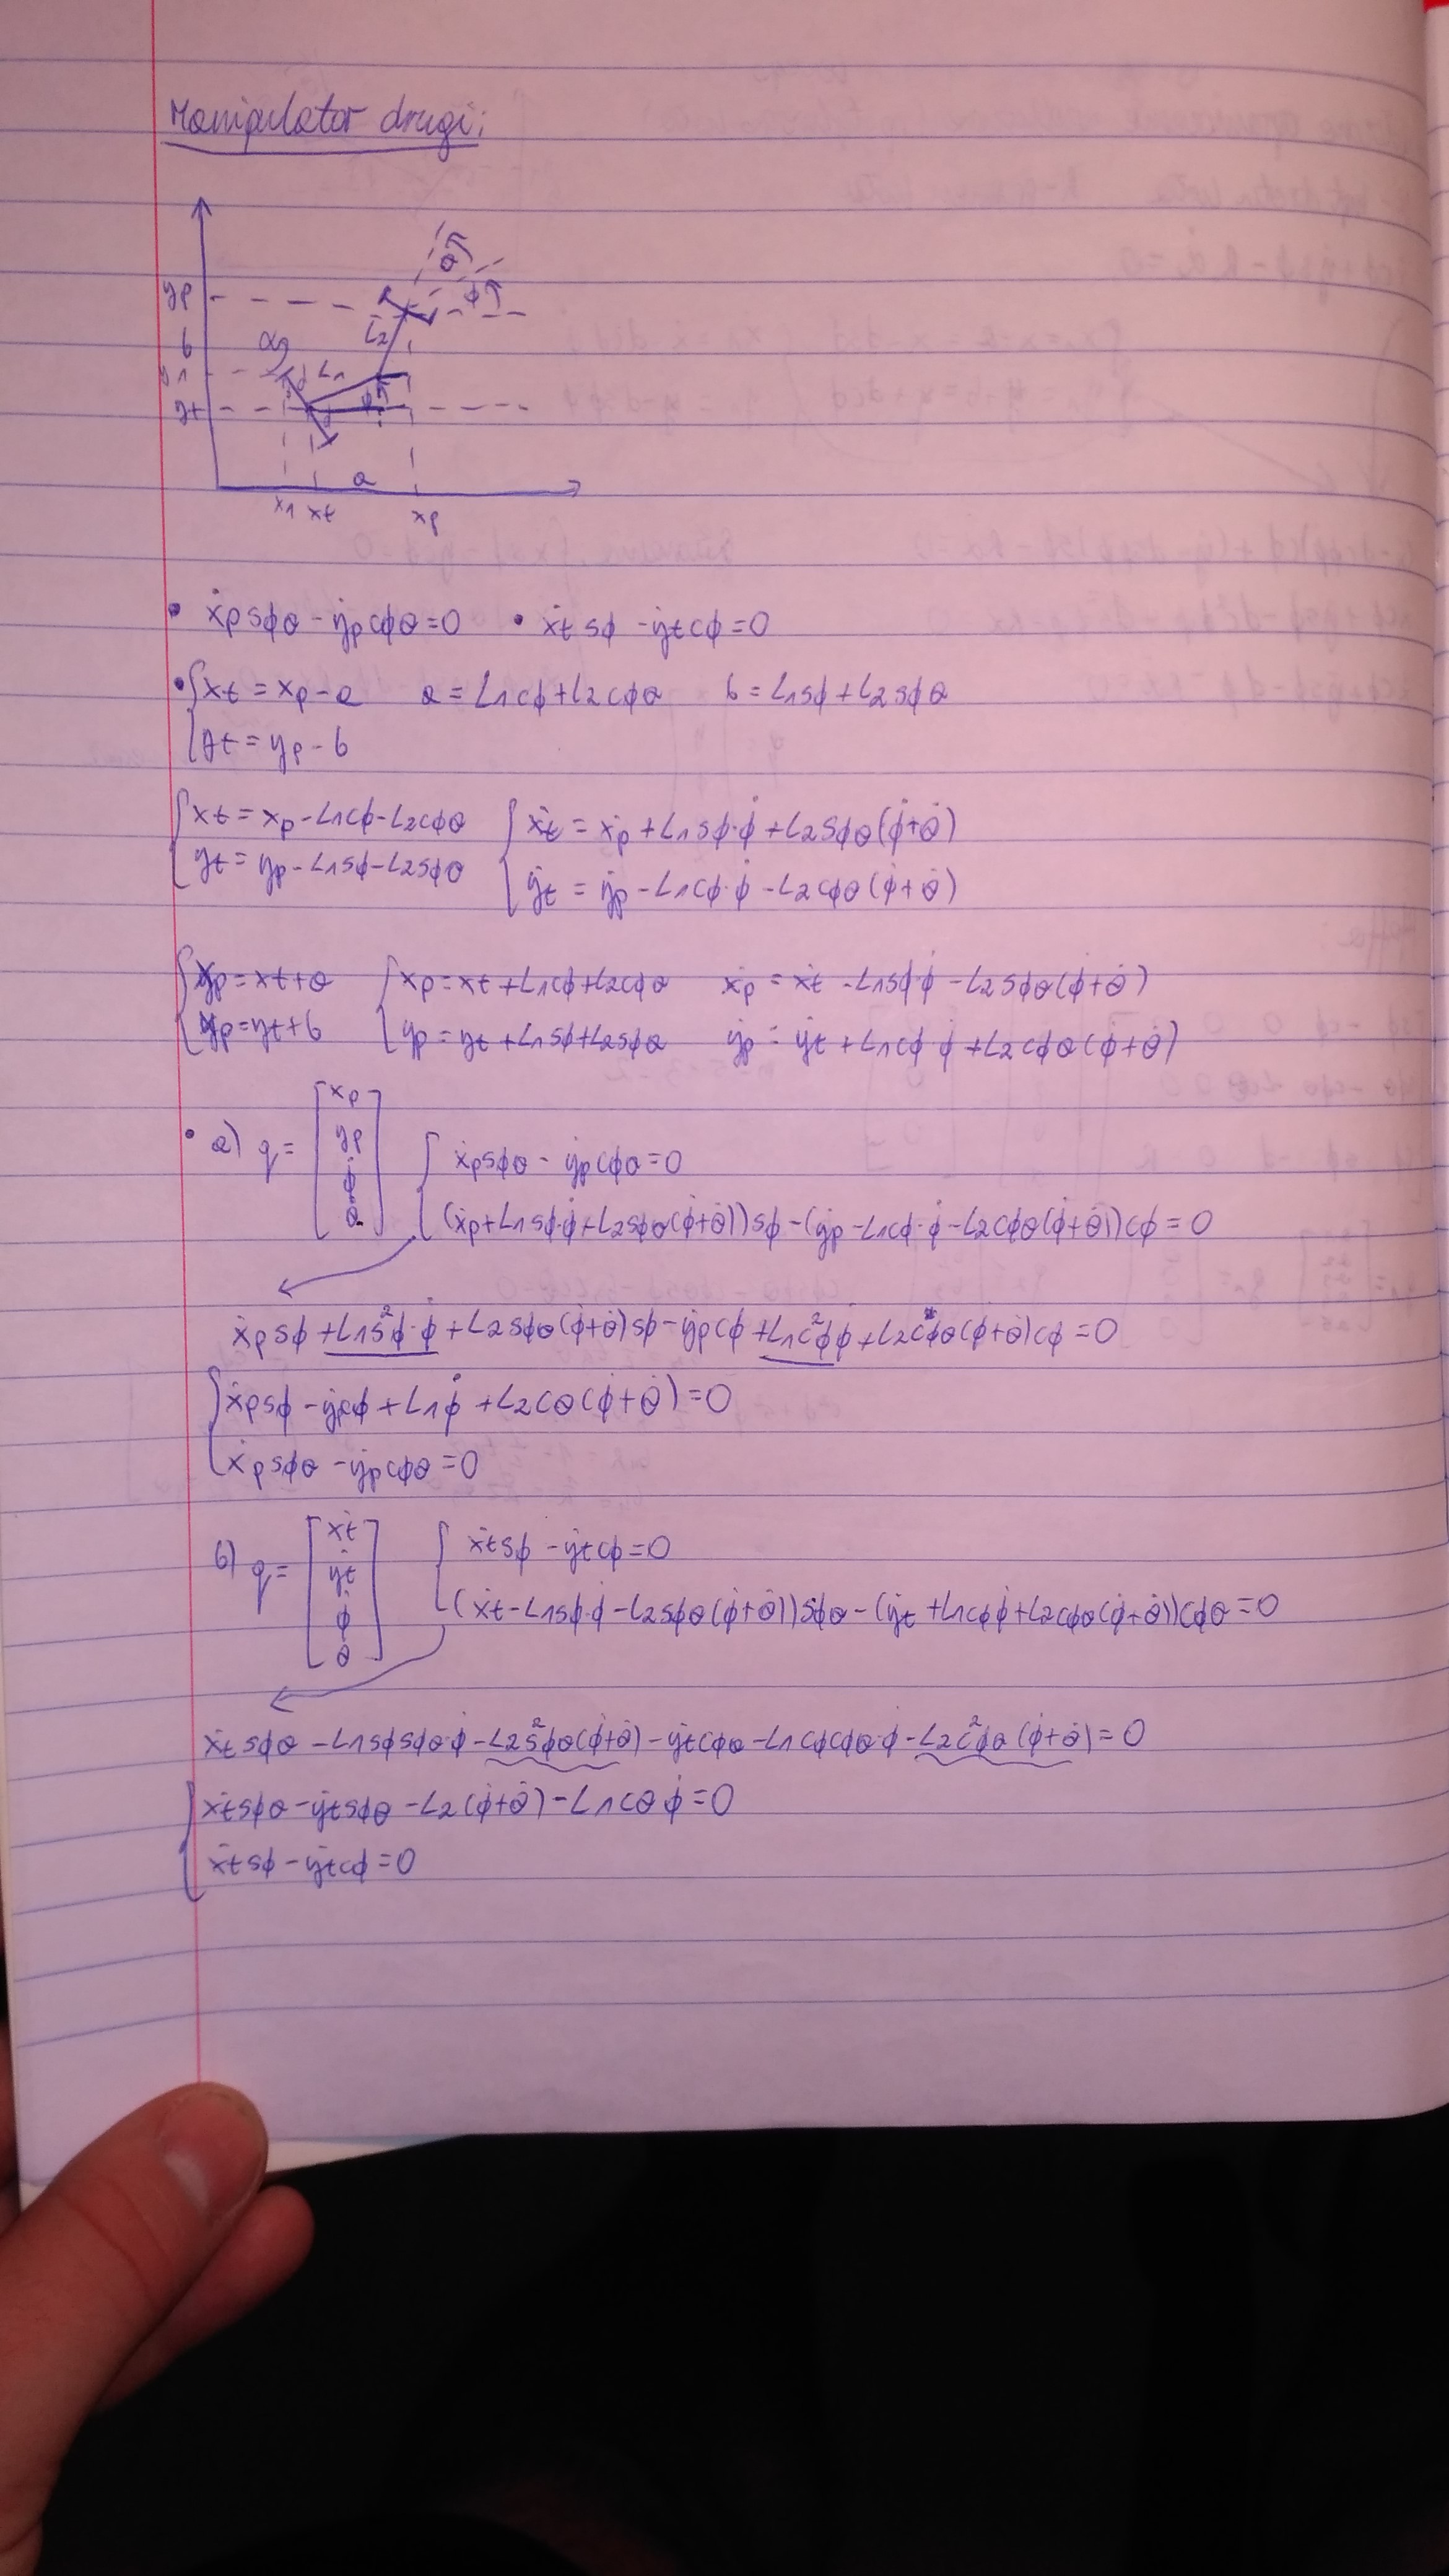 Manipulator drugi:
yp
b
y1
yt
α
L1
L2
θ
ϕ
ϕ
d
a
x1 xt xp
• ẋp sϕθ - ẏp cϕθ = 0 • ẋt sϕ - ẏt cϕ = 0
• { xt = xp - a a = L1cϕ + L2cϕθ b = L1sϕ + L2sϕθ
yt = yp - b
{ xt = xp - L1cϕ - L2cϕθ { ẋt = ẋp + L1sϕ·ϕ̇ + L2sϕθ(ϕ̇+θ̇)
yt = yp - L1sϕ - L2sϕθ ẏt = ẏp - L1cϕ·ϕ̇ - L2cϕθ(ϕ̇+θ̇)
{ xp = xt + a { xp = xt + L1cϕ + L2cϕθ ẋp = ẋt - L1sϕ·ϕ̇ - L2sϕθ(ϕ̇+θ̇)
yp = yt + b yp = yt + L1sϕ + L2sϕθ ẏp = ẏt + L1cϕ·ϕ̇ + L2cϕθ(ϕ̇+θ̇)
• a) q = [ẋp ẏp ϕ̇ θ̇] { ẋp sϕθ - ẏp cϕθ = 0
(ẋp + L1sϕ·ϕ̇ + L2sϕθ(ϕ̇+θ̇))sϕ - (ẏp - L1cϕ·ϕ̇ - L2cϕθ(ϕ̇+θ̇))cϕ = 0
ẋp sϕ + L1s²ϕ·ϕ̇ + L2sϕθ(ϕ̇+θ̇)sϕ - ẏp cϕ + L1c²ϕϕ̇ + L2cϕθ(ϕ̇+θ̇)cϕ = 0
{ ẋp sϕ - ẏp cϕ + L1ϕ̇ + L2cθ(ϕ̇+θ̇) = 0
ẋp sϕθ - ẏp cϕθ = 0
b) q = [ẋt ẏt ϕ̇ θ̇] { ẋt sϕ - ẏt cϕ = 0
(ẋt - L1sϕ·ϕ̇ - L2sϕθ(ϕ̇+θ̇))sϕθ - (ẏt + L1cϕϕ̇ + L2cϕθ(ϕ̇+θ̇))cϕθ = 0
ẋt sϕθ - L1sϕsϕθ·ϕ̇ - L2s²ϕθ(ϕ̇+θ̇) - ẏt cϕθ - L1cϕcϕθ·ϕ̇ - L2c²ϕθ(ϕ̇+θ̇) = 0
{ ẋt sϕθ - ẏt sϕθ - L2(ϕ̇+θ̇) - L1cθϕ̇ = 0
ẋt sϕ - ẏt cϕ = 0